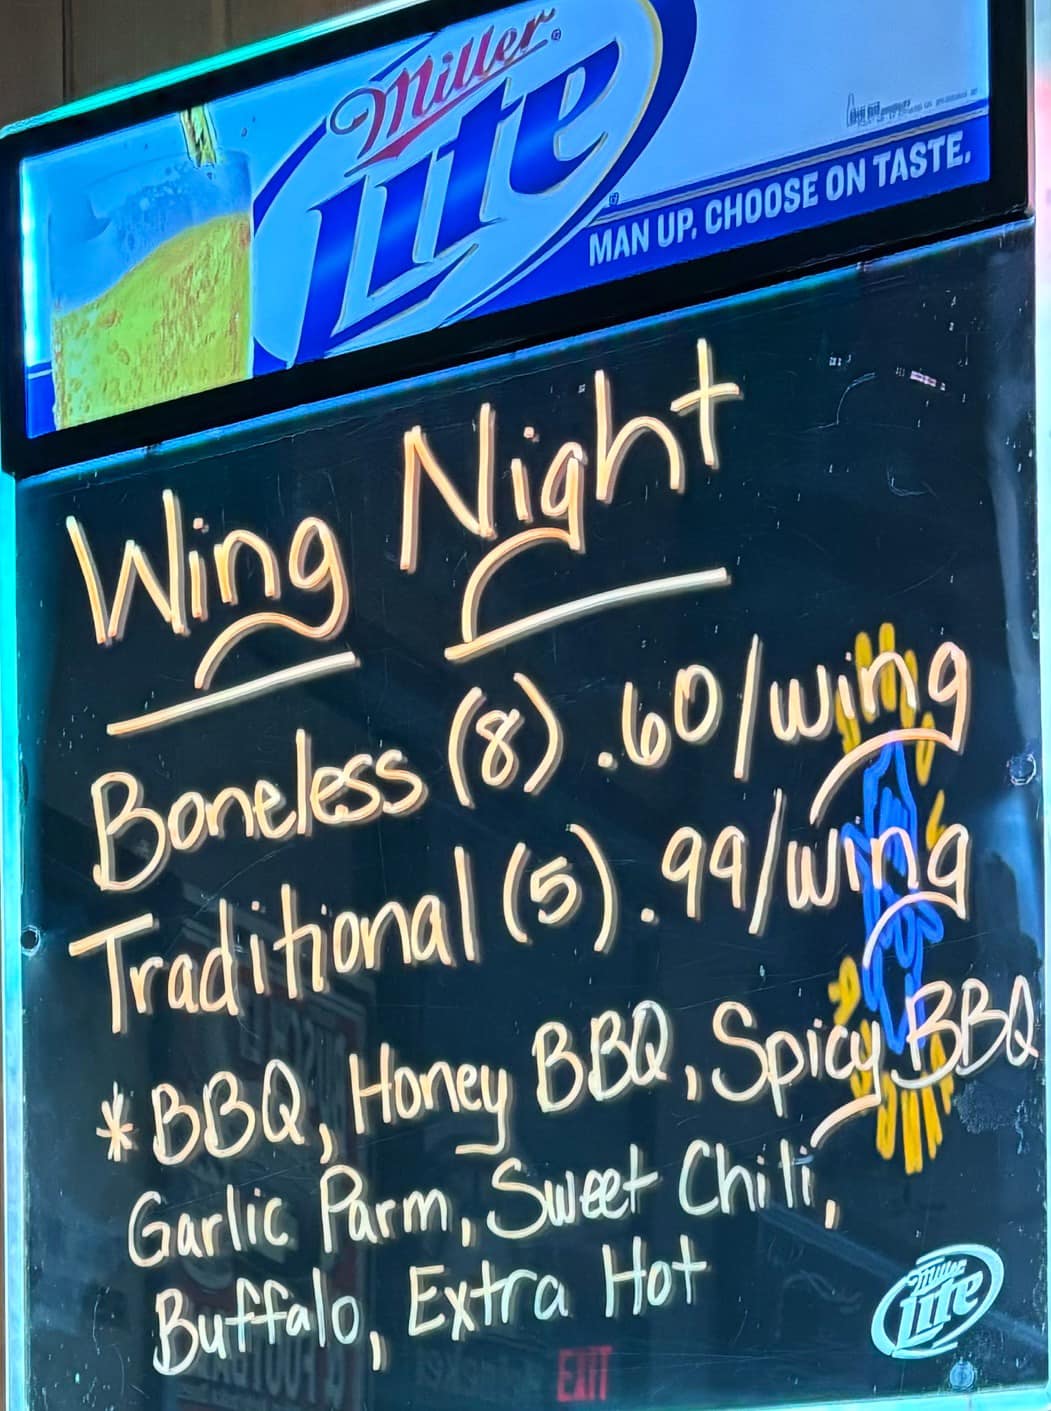 Miller
Lite
MAN UP. CHOOSE ON TASTE.
Wing Night
Boneless (8) .60/wing
Traditional (5) .99/wing
*BBQ, Honey BBQ, Spicy BBQ
Garlic Parm, Sweet Chili,
Buffalo, Extra Hot
Miller
Lite
EXIT